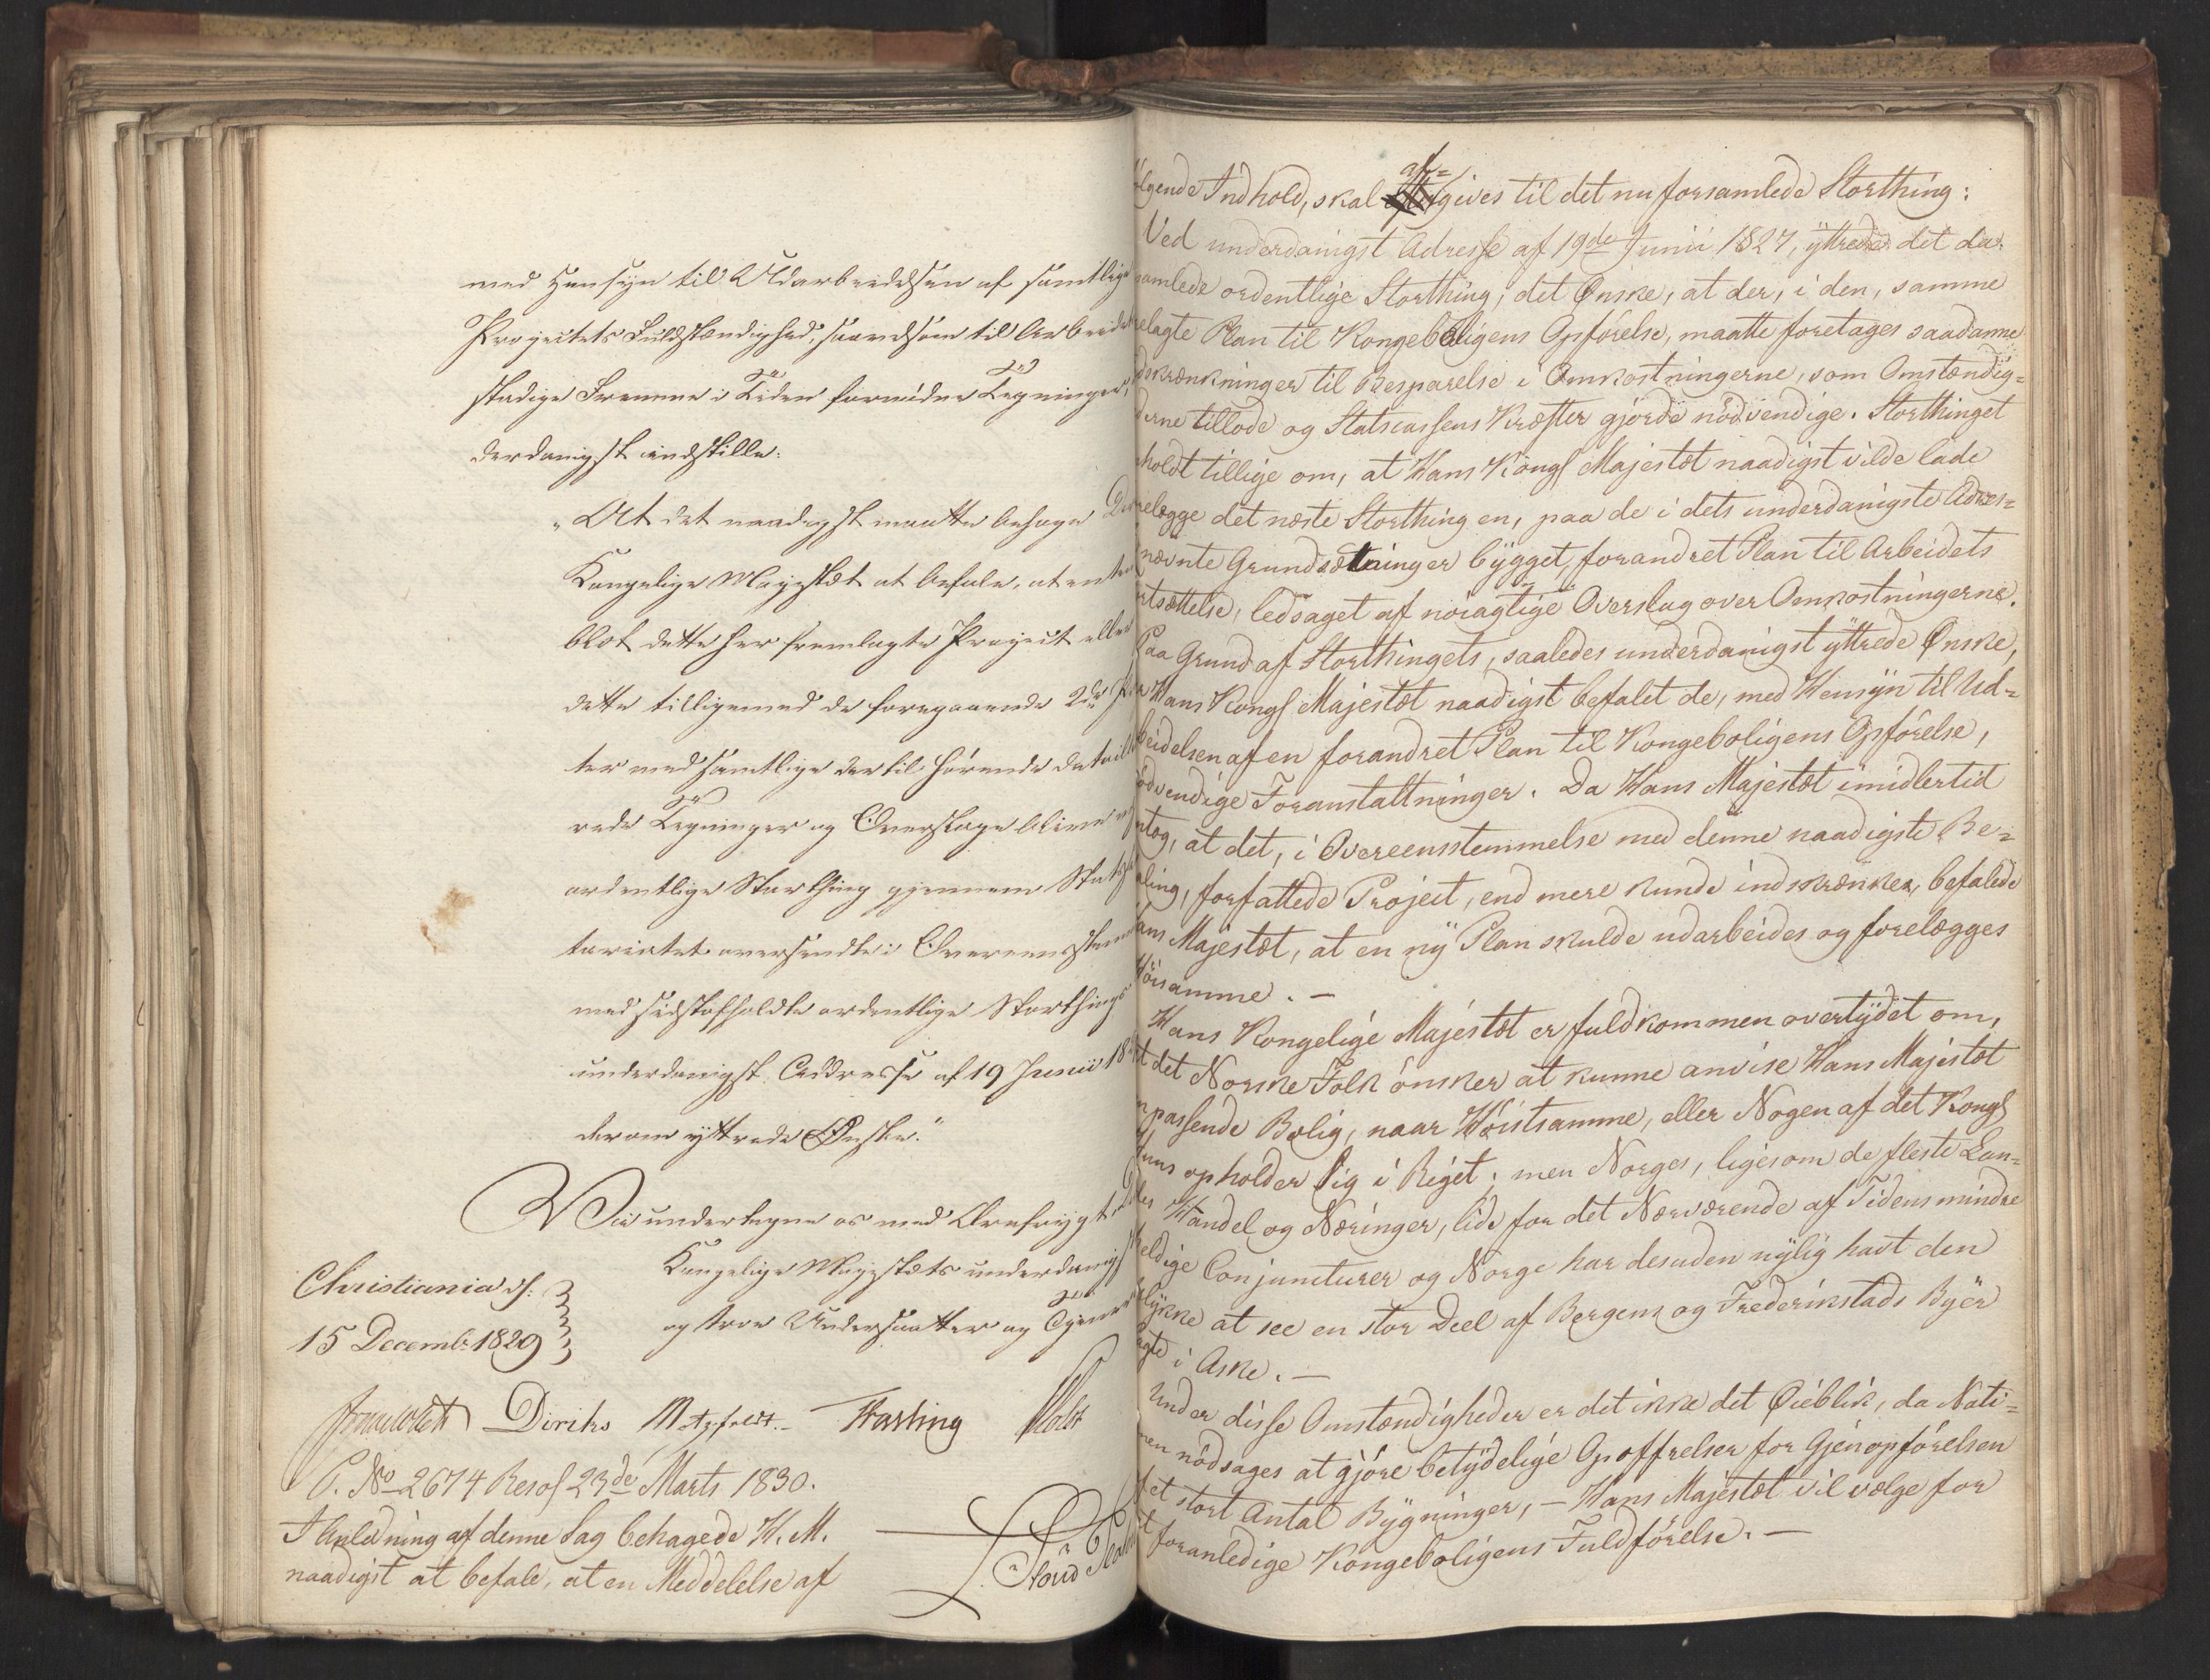 med Hensyn til Udarbeidelsen af samtlige
Projectets Fuldstændighed, saavelsom til Arbeidets
stadige Fremme i Tiden fornødne Tegninger,
derdanigst indstille:
"At det naadigst maatte behage De
Kongelige Majestæt at befale, at enten
blot dette her fremlagte Project eller
dette tilligemed de foregaaende 2de Pro
ter med samtlige dertil hørende detaille
rede Tegninger og Overslage blive
ordentlige Storthing gjennem Stats
tariatet oversendte i Overeensstem
med sidstafholdte ordentlige Storthings
underdanigst Addresse af 19 Junii 18
derom yttrede Ønske."
Vi undertegne os med Ærefrygt
Kongelige Majestæts underdanigst
og troe Undersaatter og Tjenere
Christiania d.
15 Decembr 1829
Diriks Motzfeldt. Fasting Holst
P. No 2674 Resol 23de Marts 1830.
I Anledning af denne Sag behagede H. M.
naadigst at befale, at en Meddelelse af
ølgende Indhold, skal af= gives til det nu forsamlede Storthing:
Ved underdanigst Adresse af 19de Junii 1827, ÿttrede det da
samlede ordentlige Storthing, det Ønske, at der, i den, samme
relagte Plan til Kongeboligens Opførelse, maatte foretages saadanne
dskrænkninger til Besparelse i Omkostningerne, som Omstændig=
derne tillode og Statscassens Kræfter gjorde nødvendige. Storthinget
holdt tillige om, at Hans Kongl Majestæt naadigst vilde lade
relægge det næste Storthing en, paa de i dets underdanigste Adres=
nævnte Grundsætninger bÿgget, forandret Plan til Arbeidets
rtsættelse, ledsaget af nøiagtige Overslag over Omkostningerne.
Paa Grund af Storthingets, saaledes underdanigst ÿttrede Ønske,
Hans Kongl Majestæt naadigst befalet de, med Hensÿn til Ud=
beidelsen af en forandret Plan til Kongeboligens Opførelse,
ødvendige Foranstaltninger. Da Hans Majestæt imidlertid
ntog, at det, i Overeensstemmelse med denne naadigste Be=
aling, forfattede Project, end mere kunde indskrænkes, befalede
ans Majestæt, at en nÿ Plan skulde udarbeides og forelægges
Høisamme. —
Hans Kongelige Majestæt er fuldkommen overtÿdet om,
t det Norske Folk ønsker at kunne anvise Hans Majestæt
n passende Bolig, naar Høistsamme, eller Nogen af det Kongl
Huus opholder sig i Riget; men Norges, ligesom de fleste Lan=
des Handel og Næringer, lide for det Nærværende af Tidens mindre
heldige Conjuncturer og Norge har desuden nÿlig havt den
Ulÿkke at see en stor Deel af Bergens og Frederikstads Bÿer
lagte i Aske. —
Under disse Omstændigheder er det ikke det Øieblik, da Nati=
nen nødsages at gjøre betÿdelige Opoffrelser for Gjenopførelsen
f et stort Antal Bÿgninger, — Hans Majestæt vil vælge for
t foranledige Kongeboligens Fuldførelse. —